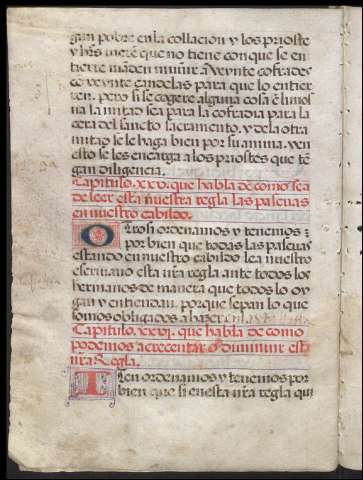 gan pobre en la collacion y los prioste
y hr̄s uierē que no tiene con que se en
tierre māden muñir a veynte cofrades
cō veynte candelas para que lo entier
ren. pero si se cogere alguna cosa ē limos
na la mitad sea para la cofradia para la
cera del sancto sacramento. y de la otra
mitad se le haga bien por su anima. y en
esto se les encarga a los priostes que tē
gan diligencia.
Capitulo. xxv. que habla de como sea
de leer esta nuestra regla las pascuas
en nuestro cabildo.
Otrosi ordenamos y tenemos
por bien que todas las pascuas
estando en nuestro cabildo lea nuestro
escriuano esta nr̄a regla ante todos los
hermanos de manera que todos lo oy
gan y entiendan. porque sepan lo que
somos obligados a hazer
Capitulo. xxvj. que habla de como
podemos acrecentar o diminuir est
nr̄a Regla.
Iten ordenamos y tenemos por
bien que si en esta nr̄a regla qui